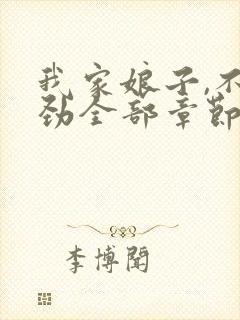 我家娘子,不
劲全部章节
李博闻